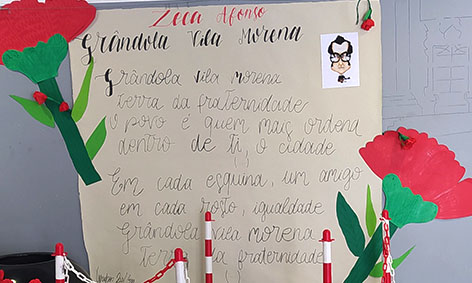 Zeca Afonso
Grândola Vila Morena
Grândola Vila Morena
terra da fraternidade
O povo é quem mais ordena
dentro de ti, o cidade
(...)
Em cada esquina, um amigo
em cada rosto, igualdade
Grândola Vila Morena
Terra da fraternidade